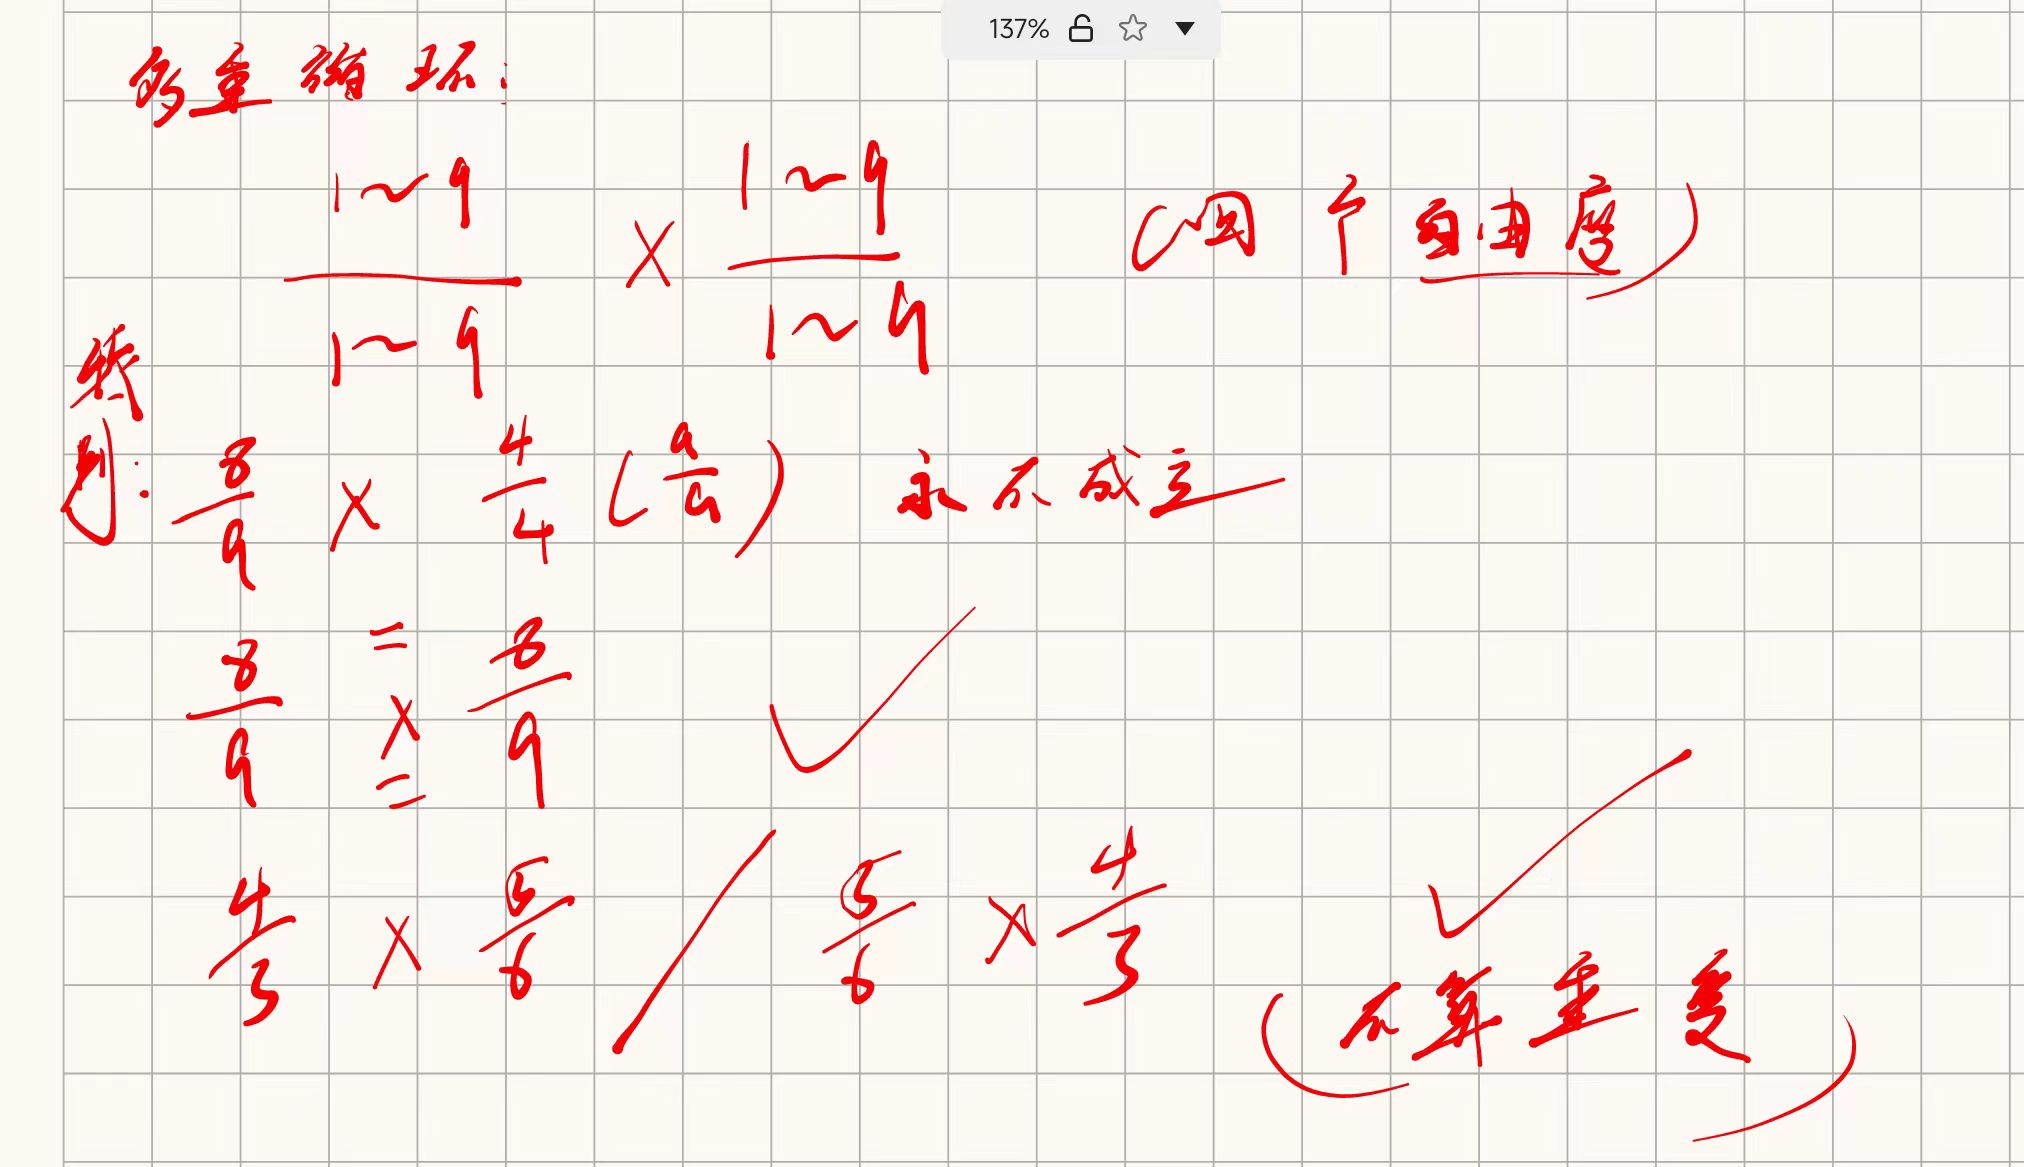 137%
多重循环:
1~9/1~9 × 1~9/1~9 (四个自由度)
特判: 8/9 × 4/4 (a/a) 永不成立
8/9 = × = 8/9 ✓
4/3 × 5/6 / 5/6 × 4/3 ✓
(不算重复)